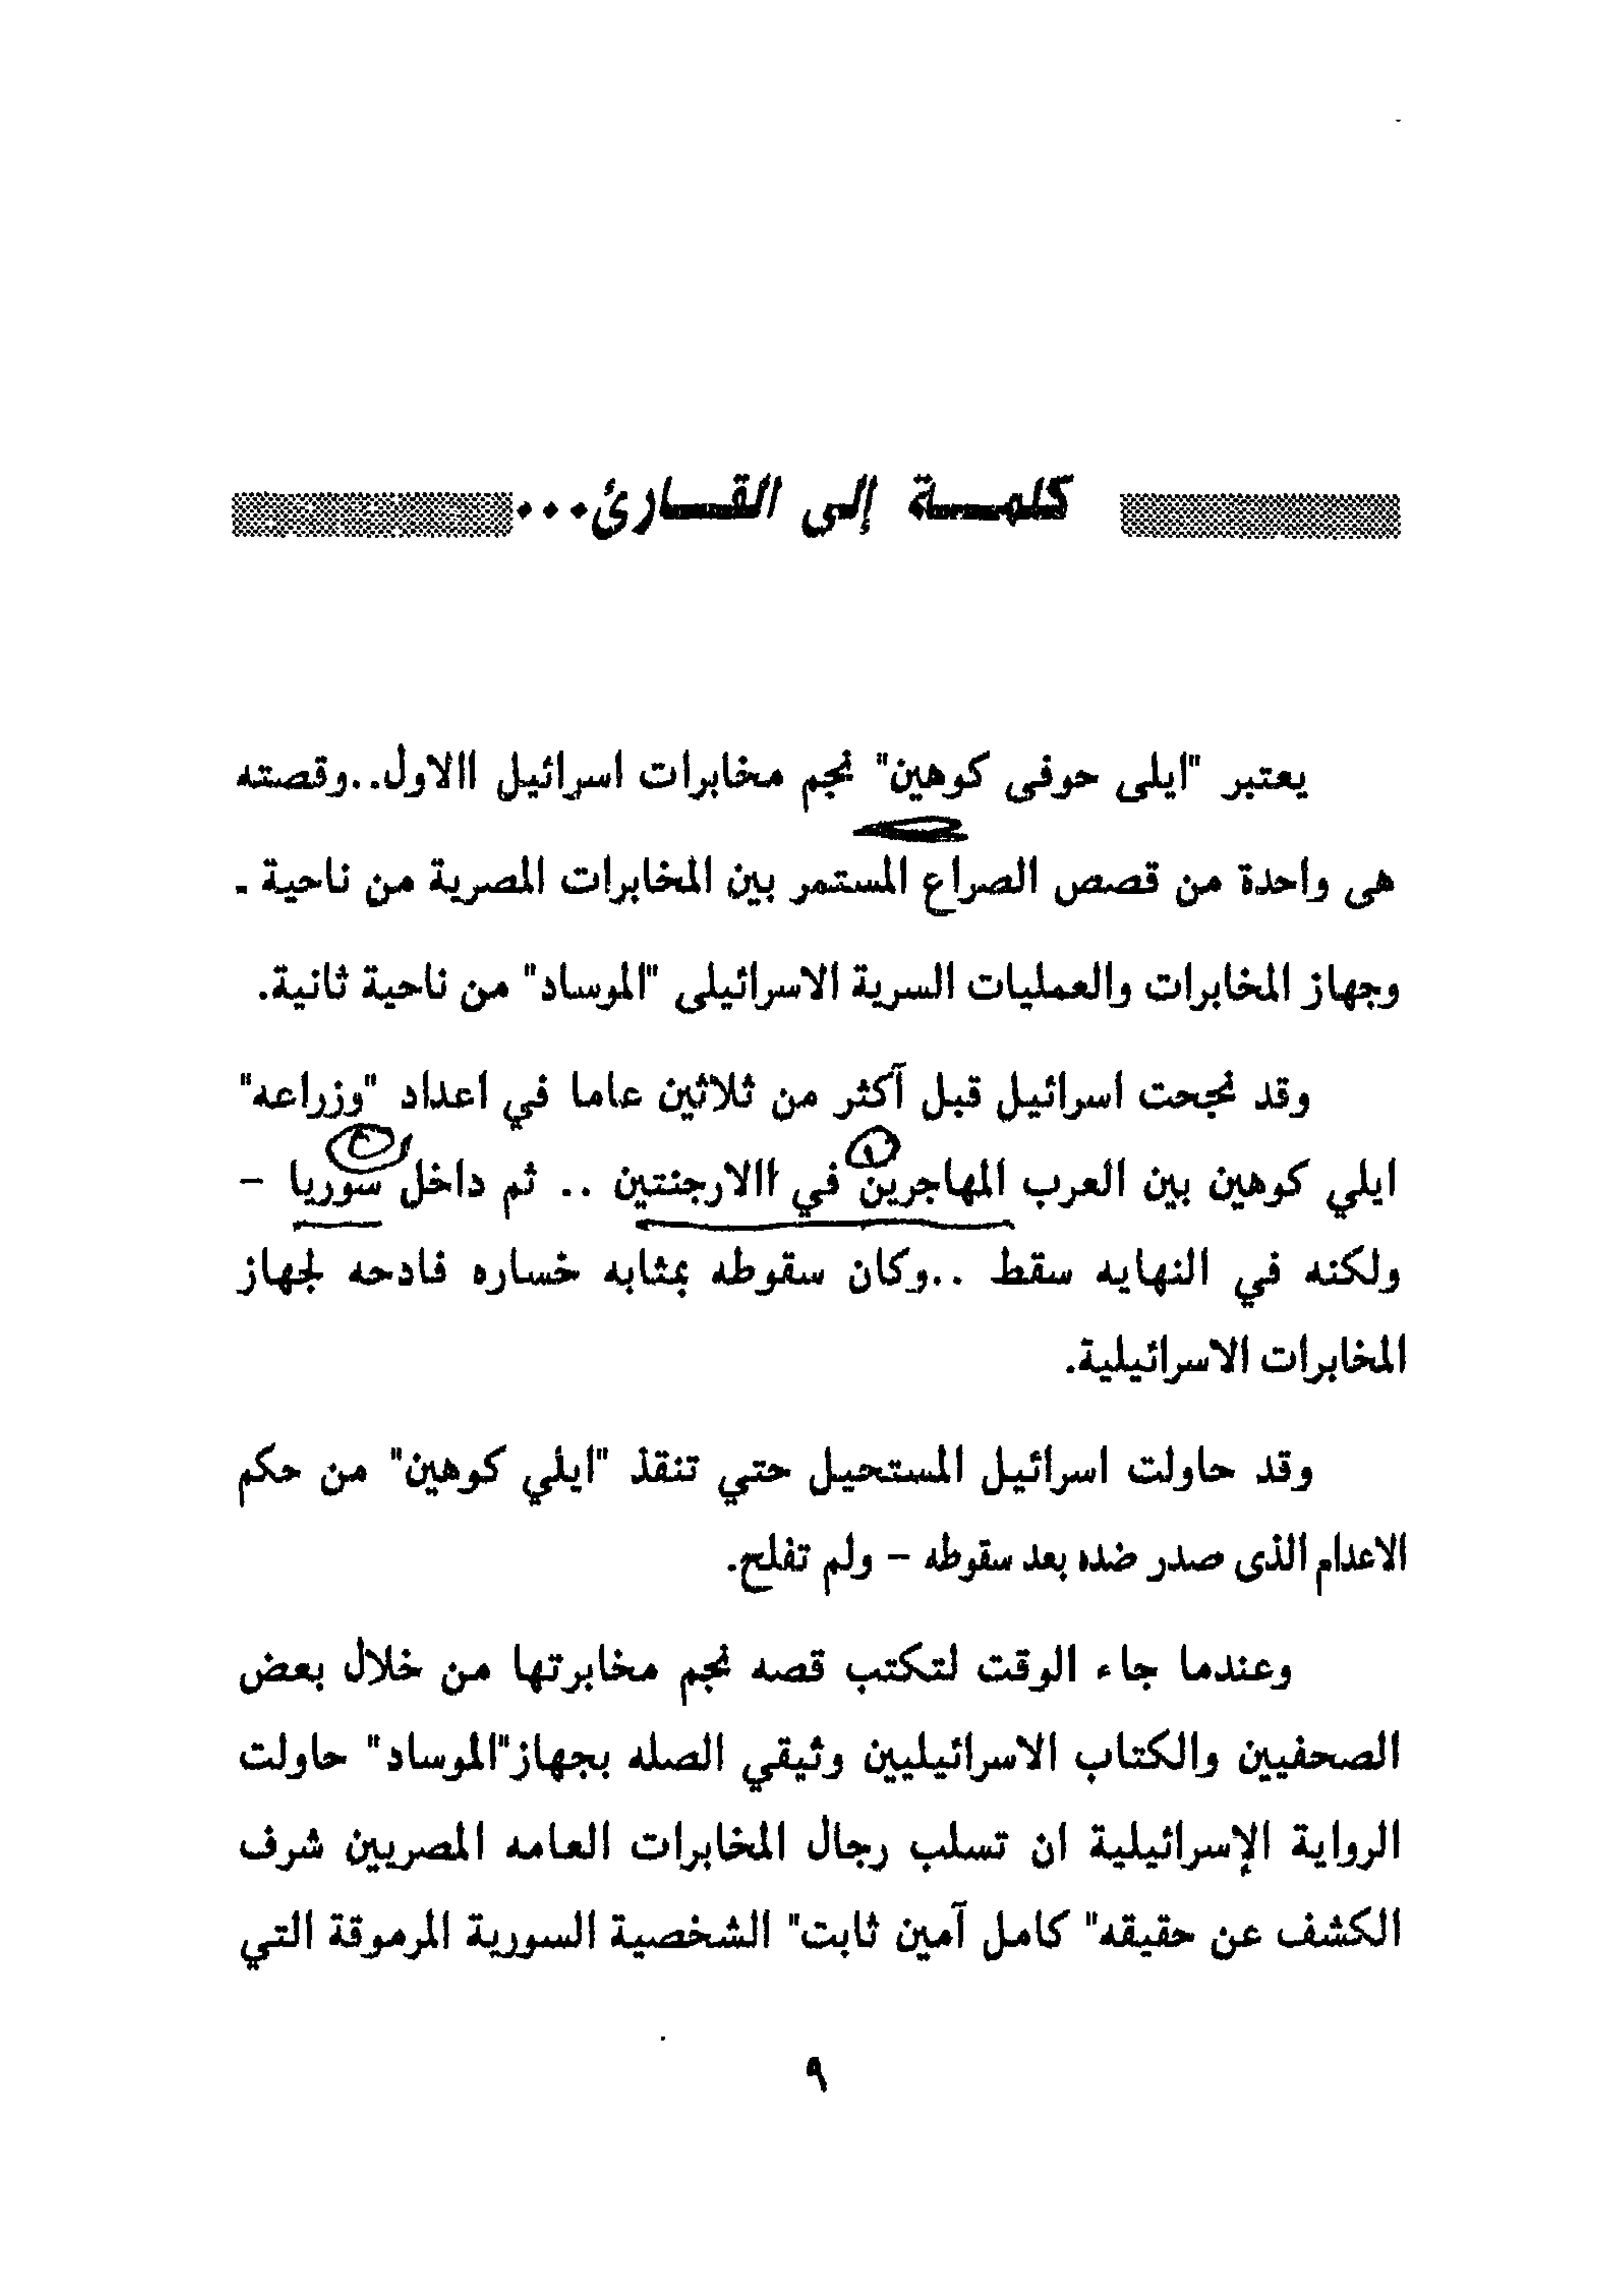 كلمـــة إلى القـــارئ...
يعتبر "ايلى حوفى كوهين" نجم مخابرات اسرائيل االاول..وقصته
هى واحدة من قصص الصراع المستمر بين المخابرات المصرية من ناحية ـ
وجهاز المخابرات والعمليات السرية الاسرائيلى "الموساد" من ناحية ثانية.
وقد نجحت اسرائيل قبل آكثر من ثلاثين عاما في اعداد "وزراعه"
١ ٢
ايلي كوهين بين العرب المهاجرين في االارجنتين .. ثم داخل سوريا –
ولكنه في النهايه سقط ..وكان سقوطه بمثابه خساره فادحه لجهاز
المخابرات الاسرائيلية.
وقد حاولت اسرائيل المستحيل حتي تنقذ "ايلي كوهين" من حكم
الاعدام الذى صدر ضده بعد سقوطه – ولم تفلح.
وعندما جاء الوقت لتكتب قصه نجم مخابرتها من خلال بعض
الصحفيين والكتاب الاسرائيليين وثيقي الصله بجهاز"الموساد" حاولت
الرواية الإسرائيلية ان تسلب رجال المخابرات العامه المصريين شرف
الكشف عن حقيقه" كامل آمين ثابت" الشخصية السورية المرموقة التي
٩